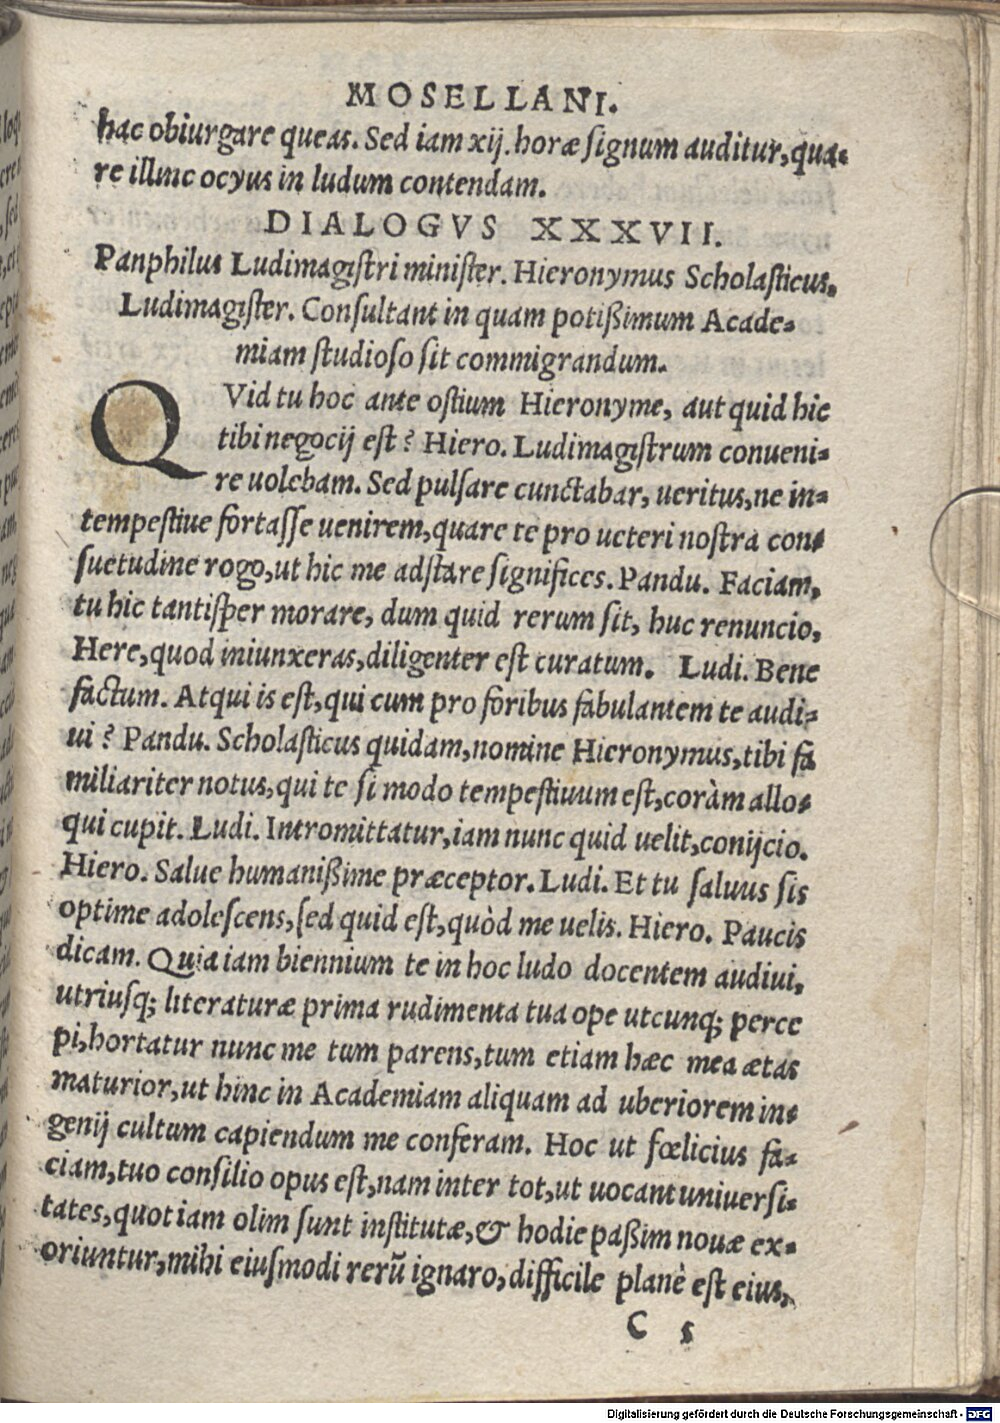 MOSELLANI.
hac obiurgare queas. Sed iam xij. horæ signum auditur, qua-
re illinc ocyus in ludum contendam.
DIALOGVS XXXVII.
Panphilus Ludimagistri minister. Hieronymus Scholasticus.
Ludimagister. Consultant in quam potißimum Acade-
miam studioso sit commigrandum.
QVid tu hoc ante ostium Hieronyme, aut quid hic
tibi negocij est? Hiero. Ludimagistrum conueni-
re uolebam. Sed pulsare cunctabar, ueritus, ne in-
tempestiue fortasse uenirem, quare te pro ueteri nostra con-
suetudine rogo, ut hic me adstare significes. Pandu. Faciam,
tu hic tantisper morare, dum quid rerum sit, huc renuncio.
Here, quod iniunxeras, diligenter est curatum. Ludi. Bene
factum. Atqui is est, qui cum pro foribus fabulantem te audi-
ui? Pandu. Scholasticus quidam, nomine Hieronymus, tibi fa
miliariter notus, qui te si modo tempestiuum est, coràm allo-
qui cupit. Ludi. Intromittatur, iam nunc quid uelit, conijcio.
Hiero. Salue humanißime præceptor. Ludi. Et tu saluus sis
optime adolescens, sed quid est, quòd me uelis. Hiero. Paucis
dicam. Quia iam biennium te in hoc ludo docentem audiui,
utriusq; literaturæ prima rudimenta tua ope utcunq; perce
pi, hortatur nunc me tum parens, tum etiam hæc mea ætas
maturior, ut hinc in Academiam aliquam ad uberiorem in-
genij cultum capiendum me conferam. Hoc ut fœlicius fa-
ciam, tuo consilio opus est, nam inter tot, ut uocant uniuersi-
tates, quot iam olim sunt institutæ, & hodie paßim nouæ ex-
oriuntur, mihi eiusmodi rerū ignaro, difficile planè est eius,
C 5
Digitalisierung gefördert durch die Deutsche Forschungsgemeinschaft - DFG